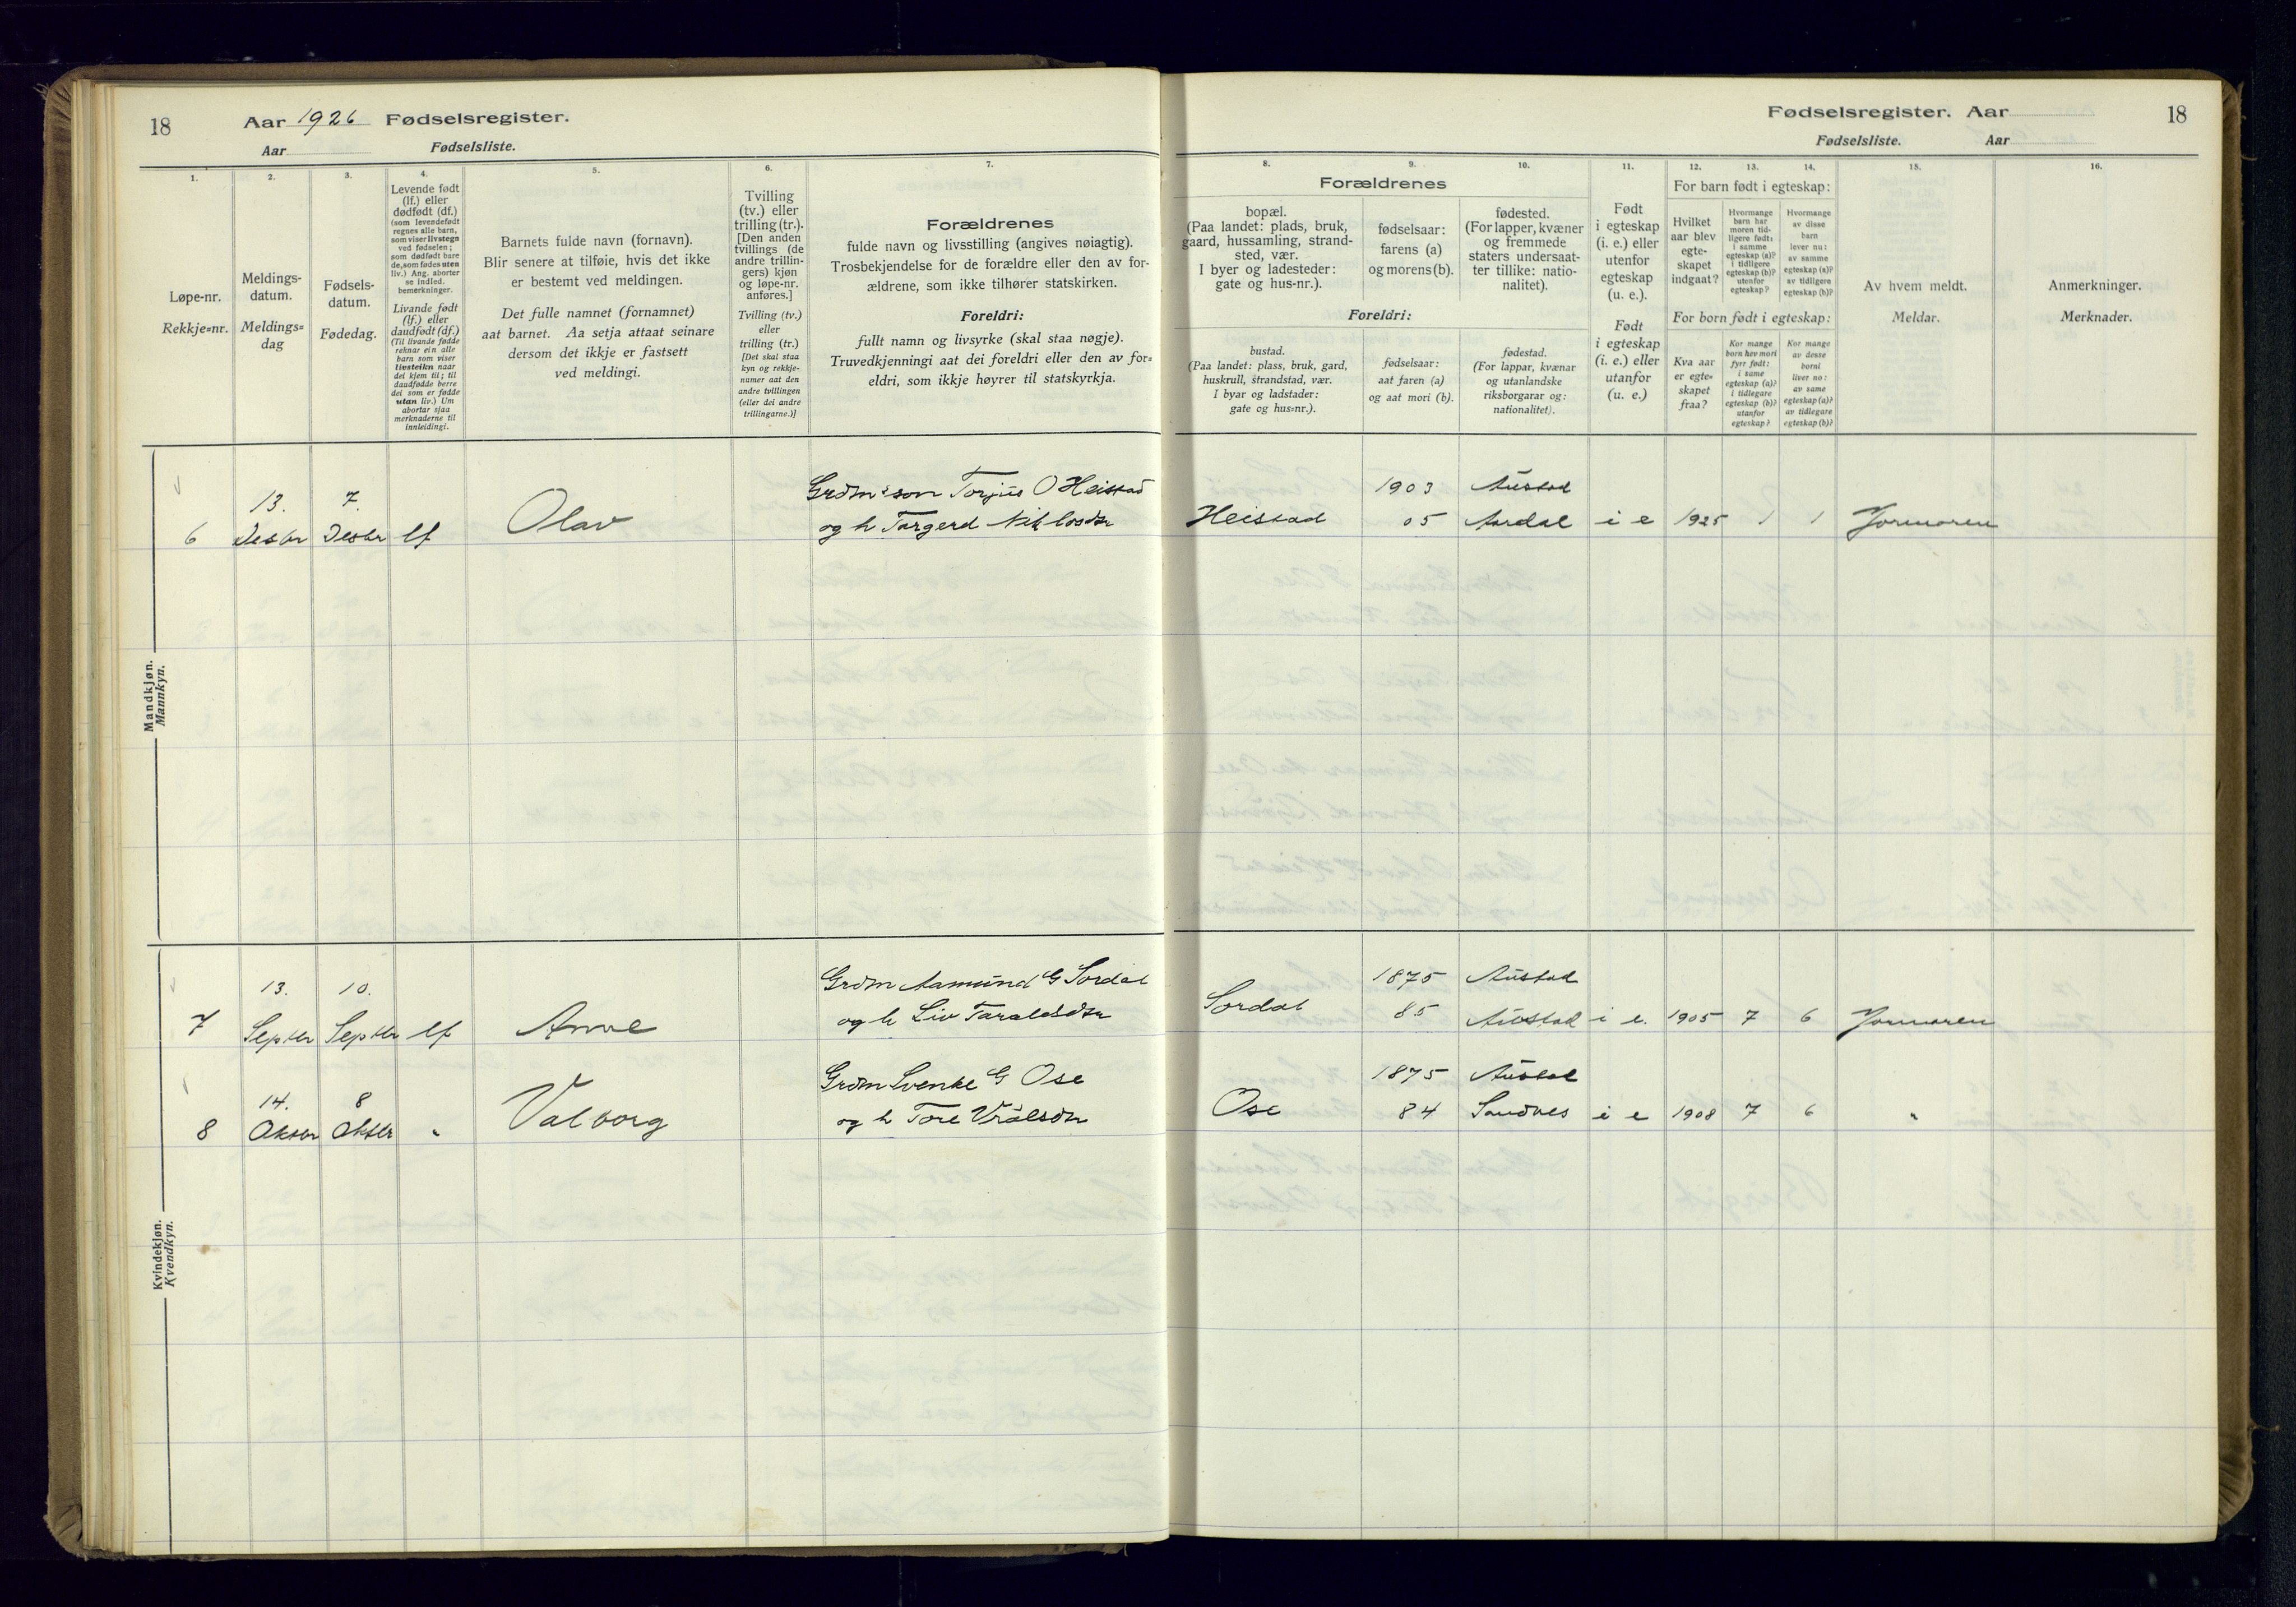 18
Aar 1926 Fødselsregister.
Aar Fødselsliste.
1.
2.
3.
4.
5.
6.
7.
Løpe-nr.
Rekkje=nr.
Meldings-
datum.
Meldings=
dag
Fødsels-
datum.
Fødedag.
Levende født
(lf.) eller
dødfødt (df.)
(som levendefødt
regnes alle barn,
som viser livstegn
ved fødselen;
som dødfødt bare
de, som fødes uten
liv.) Ang. aborter
se indled.
bemerkninger.
Livande født
(lf.) eller
daudfødt (df.)
(Til livande fødde
reknar ein alle
barn som viser
livsteikn naar
dei kjem til; til
daudfødde berre
dei som er fødde
utan liv.) Um
abortar sjaa
merknaderne til
innleidingi.
Barnets fulde navn (fornavn).
Blir senere at tilføie, hvis det ikke
er bestemt ved meldingen.
Det fulle namnet (fornamnet)
aat barnet. Aa setja attaat seinare
dersom det ikkje er fastsett
ved meldingi.
Tvilling
(tv.) eller
trilling (tr.).
[Den anden
tvillings (de
andre trillin-
gers) kjøn
og løpe-nr.
anføres.]
Tvilling (tv.)
eller
trilling (tr.)
[Det skal staa
kyn og rekkje-
numer aat den
andre tvillingen
(eller dei andre
trillingarne.)]
Forældrenes
fulde navn og livsstilling (angives nøiagtig).
Trosbekjendelse for de forældre eller den av for-
ældrene, som ikke tilhører statskirken.
Foreldri:
fullt namn og livsyrke (skal staa nøgje).
Truvedkjenningi aat dei foreldri eller den av for=
eldri, som ikkje høyrer til statskyrkja.
Mandkjøn.
Mannkyn.
13. 7. Grdm:son Torjus O Heistad
6 Desbr Desbr lf Olav og h Torgerd Niklosdtr
Kvindekjøn.
Kvendkyn.
13. 10. Grdm Aamund G Sordal
7 Septbr Septbr lf Anne og h Liv Taraldsdtr
14. 8 Grdm Svenke G Ose
8 Oktbr Oktbr " Valborg og h Tore Vrålsdtr
Fødselsregister. Aar
18
Fødselsliste. Aar
8.
9.
10.
11.
12.
13.
14.
15.
16.
Forældrenes
bopæl.
(Paa landet: plads, bruk,
gaard, hussamling, strand-
sted, vær.
I byer og ladesteder:
gate og hus-nr.).
fødselsaar:
farens (a)
og morens (b).
fødested.
(For lapper, kvæner
og fremmede
staters undersaat-
ter tillike: natio-
nalitet).
Foreldri:
bustad.
(Paa landet: plass, bruk, gard,
huskrull, strandstad, vær.
I byar og ladstader:
gate og hus=nr.).
fødselsaar:
aat faren (a)
og aat mori (b).
fødestad.
(For lappar, kvænar
og utanlandske
riksborgarar og:
nationalitet).
Født
i egteskap
(i. e.) eller
utenfor
egteskap
(u. e.).
Født
i egteskap
(i. e.) eller
utanfor
(u. e.)
For barn født i egteskap:
Hvilket
aar blev
egte-
skapet
indgaat?
Hvormange
barn har
moren tid-
ligere født:
i samme
egteskap (a)?
i tidligere
egteskap (b)?
utenfor
egteskap?
Hvormange
av disse
barn
lever nu:
av samme
egteskap (a)?
av tidligere
egteskap (b)?
For born født i egteskap:
Kva aar
er egte=
skapet
fraa?
Kor mange
born hev mori
fyrr født:
i same
egteskap (a)?
i tidlegare
egteskap (b)?
utanfor
egteskap?
Kor mange
av desse
borni
liver no:
av same
egteskap (a)?
av tidlegare
egteskap (b)?
Av hvem meldt.
Meldar.
Anmerkninger.
Merknader.
1903 Austad
Heistad 05 Aardal i e 1925 1 1 Jormoren
1875 Austad
Sordal 85 Austad i e. 1905 7 6 Jormoren
1875 Austad
Ose 84 Sandnes i e 1908 7 6 "